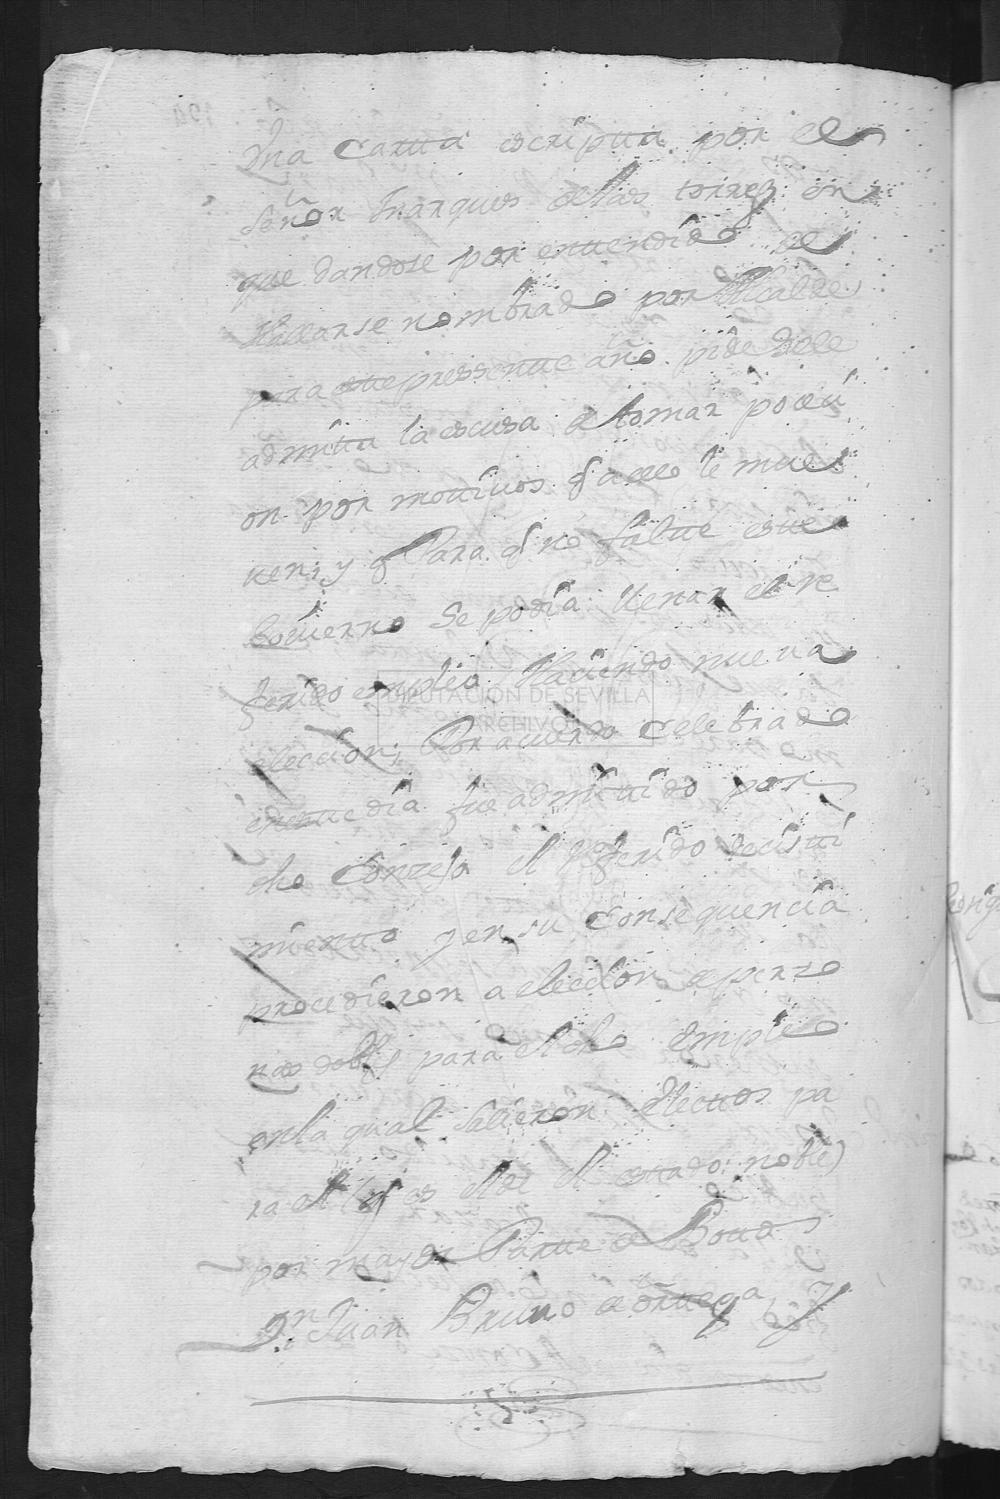 Una Cartta escriptta por el
señor marques de las torres en
que dandose por enttendido de
Hallarse nombrado por Alcalde
para estte pressentte año pide sele
admitta la escusa de tomar posesi
on por mottivos q a ello le mue
ven; y q Para q no faltte estte
Govierno Se podia llenar el re
ferido empleo Haciendo nueva
eleccion; Por acuerdo Celebrado
enestte dia fue admittido por
dho Conzejo el referido desistti
mientto y en su Consequencia
procedieron a eleccion de perzo
nas dobles para el dho Empleo
en la qual salieron Electtos pa
ra el (q es el de el esttado noble)
por mayor Partte de Bottos
Dn Juan Bruno de orttega, y
DIPUTACIÓN DE SEVILLA
ARCHIVO